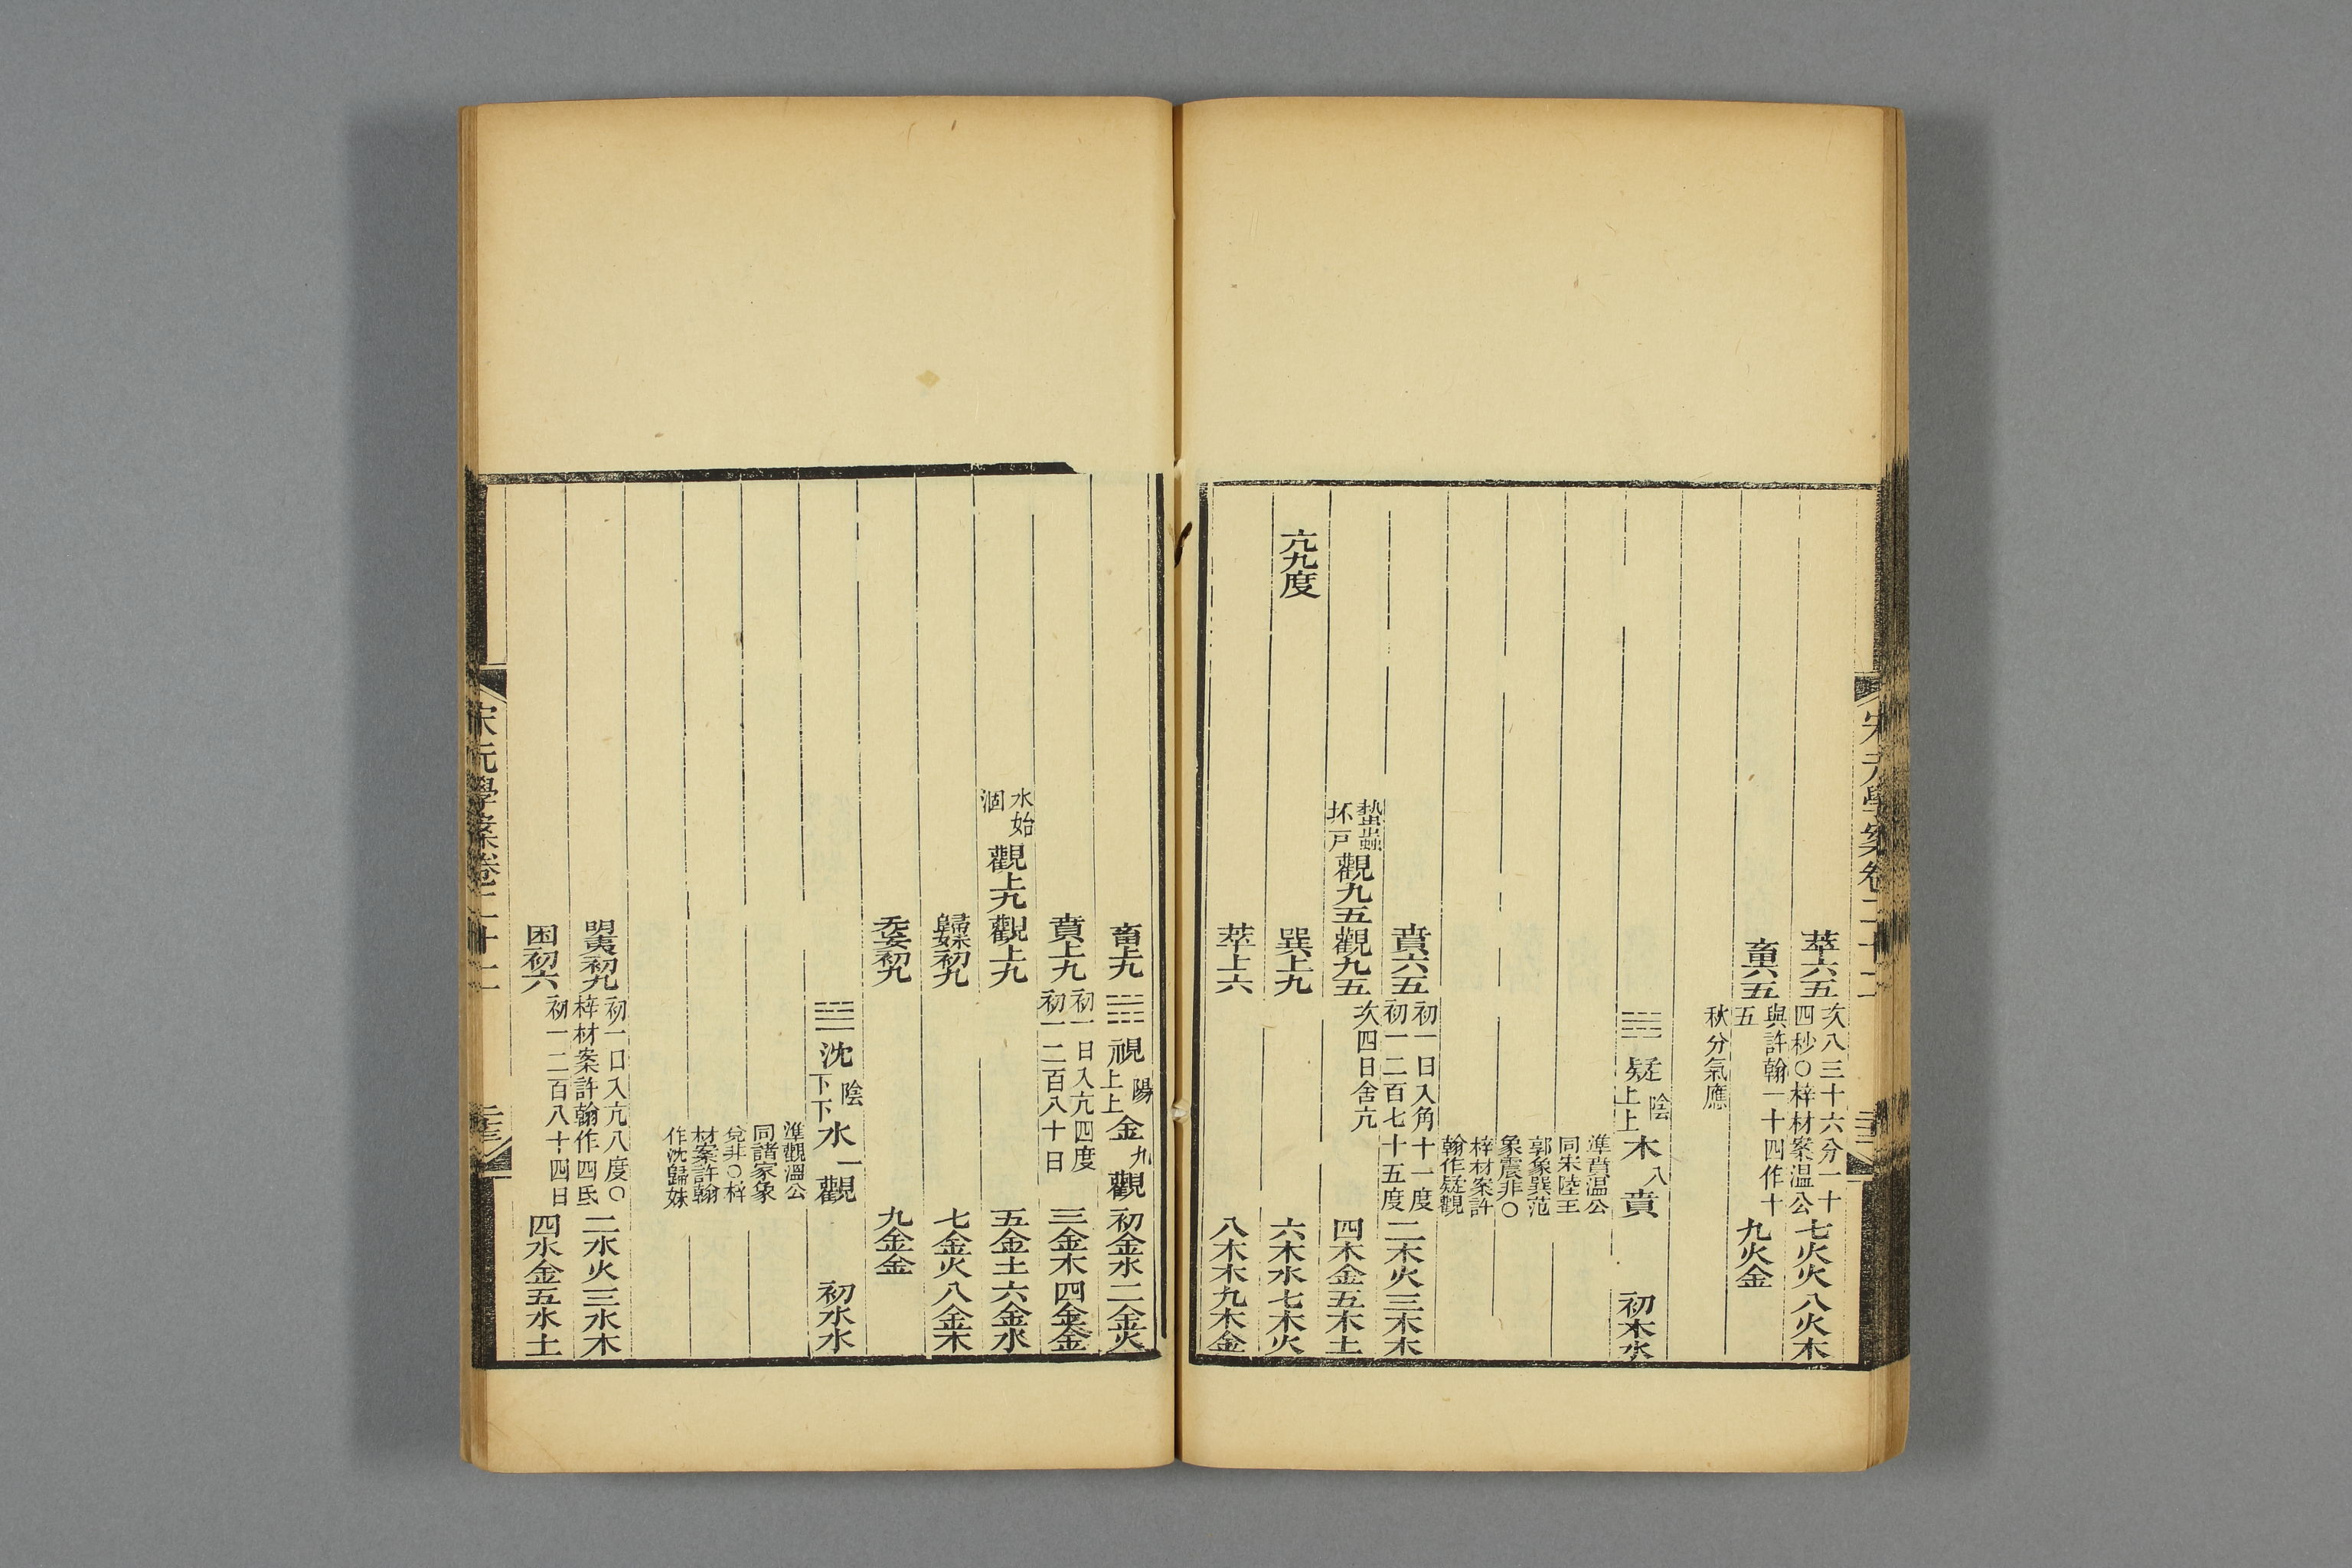 萃六五
次八三十六分一十
四秒○梓材案温公
七火火八火木
畜六五
與許翰一十四作十
五
九火金
秋分氣應
䷖疑
陰
上上
木
八
賁
初木水
準賁温公
同宋陸王
郭象巽范
象震非○
梓材案許
翰作疑觀
賁六五
初一日入角十一度
初一二百七十五度
二木火三木木
蟄蟲
坏戸
觀九五觀九五
次四日舍亢
四木金五木土
亢九度
巽上九
六木水七木火
萃上六
八木木九木金
畜上九
視
陽
上上
金
九
觀
初金水二金火
賁上九
初一日入亢四度
初一二百八十日
三金木四金金
水始
涸
觀上九觀上九
五金土六金水
歸妹初九
七金火八金木
无妄初九
九金金
沈
陰
下下
水
一
觀
初水水
準觀溫公
同諸家象
兌非○梓
材案許翰
作沈歸妹
明夷初九
初一日入亢八度○
梓材案許翰作四氐
二水火三水木
困初六
初一二百八十四日
四水金五水土
宋元學案卷二十二